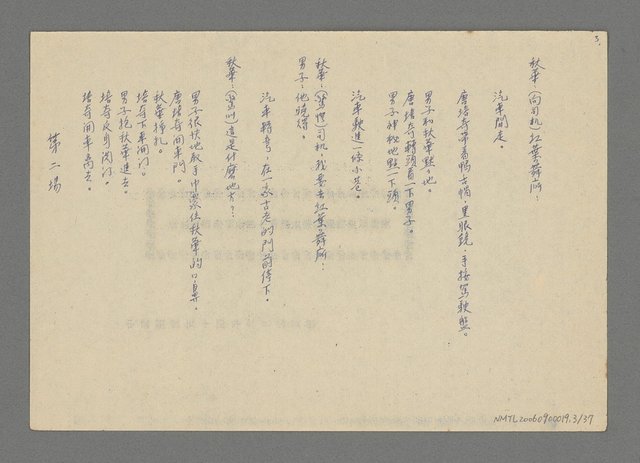 3.
秋華：（向司机）紅葉舞所！
汽車開走。
唐培奇帶着鴨舌帽，黑眼鏡，手接駕駛盤。
男子和秋華點々地。
唐培奇轉頭看一下男子。
男子神秘地點一下頭。
汽車駛進一條小巷
秋華：（驚惶）司机，我要去紅葉舞所！
男子：他曉得。
汽車轉弯，在一家古老的門前停下。
秋華：（驚叫）這是什麼地方？！
男子很快地取手巾塞住秋華的口鼻，
唐培奇開車門。
秋華掙扎。
培奇下車開门。
男子抱秋華進去。
培奇反身関门。
培奇開車离去。
第二場
NMTL20060900019.3/37